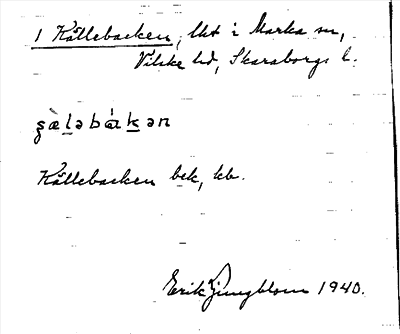 1 Källebacken, lht i Marka sn,
Vilske hd, Skaraborgs l.
ʂæ̀l̠əbák̠ən
Källebacken bek, kb.
Erik Ljungblom 1940.